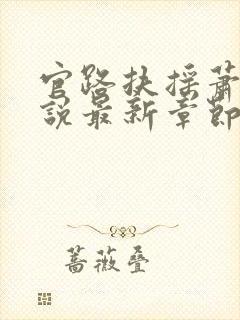 官路扶摇萧
说最新章節
蔷薇叠